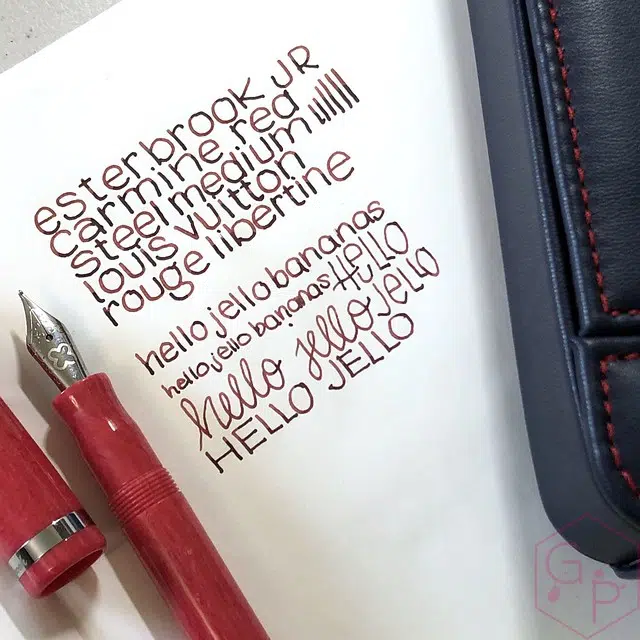 esterbrook JR
carmine red
steel medium
louis vuitton
rouge libertine
hello jello bananas
hello jello bananas Hello
hello jello jello
HELLO JELLO
GP